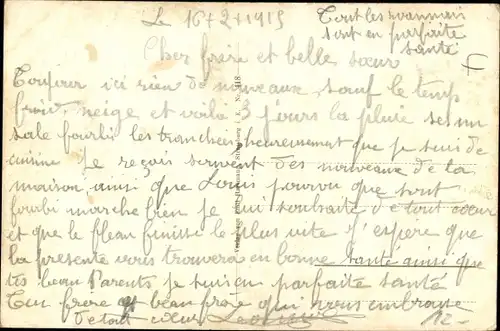 Le 16+2+1915
Tout les
sont en parfaite
santé
Cher frere et belle sœur
Toujour ici rien de nouveaux sauf le temp
froid, neige et voila 3 jours la pluie
sale fourbi les tranchee heureusement que je suis de
cuisine Je reçois souvent des nouveaux de la
maison ainsi que Louis pourvu que tout
fourbi marche bien je lui souhaite de tout cœur
et que le fleau finisse le plus vite J'espere que
la presente vous trouvera en bonne santé ainsi que
tes beau Parents, je suis en parfaite santé
Ton frere et beau frere qui vous embrasse
de tout cœur
12-